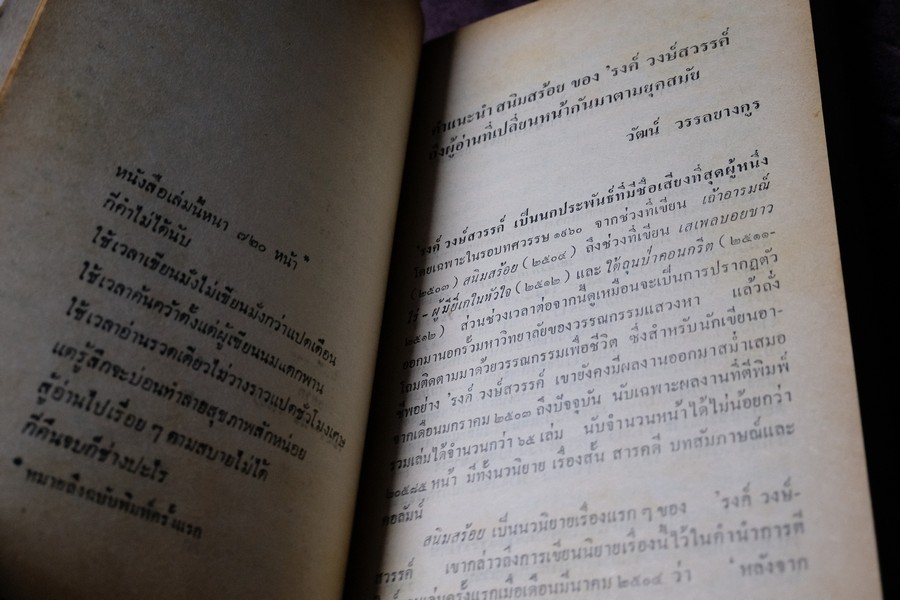 หนังสือเล่มนี้หนา ๗๒๐ หน้า*
กี่คำไม่ได้นับ
ใช้เวลาเขียนมั่งไม่เขียนมั่งกว่าแปดเดือน
ใช้เวลาค้นคว้าตั้งแต่ผู้เขียนนมแตกพาน
ใช้เวลาอ่านรวดเดียวไม่วางราวแปดชั่วโมงเศษ
แต่รู้สึกจะบ่อนทำลายสุขภาพสักหน่อย
สู้อ่านไปเรื่อย ๆ ตามสบายไม่ได้
กี่คืนจบก็ช่างปะไร
* หมายถึงฉบับพิมพ์ครั้งแรก
คำแนะนำ สนิมสร้อย ของ 'รงค์ วงษ์สวรรค์
ถึงผู้อ่านที่เปลี่ยนหน้ากันมาตามยุคสมัย
วัฒน์ วรรลยางกูร
'รงค์ วงษ์สวรรค์ เป็นนักประพันธ์ที่มีชื่อเสียงที่สุดผู้หนึ่ง
โดยเฉพาะในรอบทศวรรษ ๑๙๖๐ จากช่วงที่เขียน เถ้าอารมณ์
(๒๕๐๓) สนิมสร้อย (๒๕๐๔) ถึงช่วงที่เขียน เสเพลบอยชาว
ไร่ - ผู้มียี่เกในหัวใจ (๒๕๑๒) และ ใต้ถุนป่าคอนกรีต (๒๕๑๑-
๒๕๑๒) ส่วนช่วงเวลาต่อจากนี้ดูเหมือนจะเป็นการปรากฏตัว
ออกมานอกรั้วมหาวิทยาลัยของวรรณกรรมแสวงหา แล้วถั่ง
โถมติดตามมาด้วยวรรณกรรมเพื่อชีวิต ซึ่งสำหรับนักเขียนอา-
ชีพอย่าง 'รงค์ วงษ์สวรรค์ เขายังคงมีผลงานออกมาสม่ำเสมอ
จากเดือนมกราคม ๒๕๐๓ ถึงปัจจุบัน นับเฉพาะผลงานที่ตีพิมพ์
รวมเล่มได้จำนวนกว่า ๖๕ เล่ม นับจำนวนหน้าได้ไม่น้อยกว่า
๒๐๕๘๕ หน้า มีทั้งนวนิยาย เรื่องสั้น สารคดี บทสัมภาษณ์และ
คอลัมน์
สนิมสร้อย เป็นนวนิยายเรื่องแรก ๆ ของ 'รงค์ วงษ์-
สวรรค์ เขากล่าวถึงการเขียนนิยายเรื่องนี้ไว้ในคำนำการตี
เล่มครั้งแรกเมื่อเดือนมีนาคม ๒๕๑๔ ว่า "หลังจาก